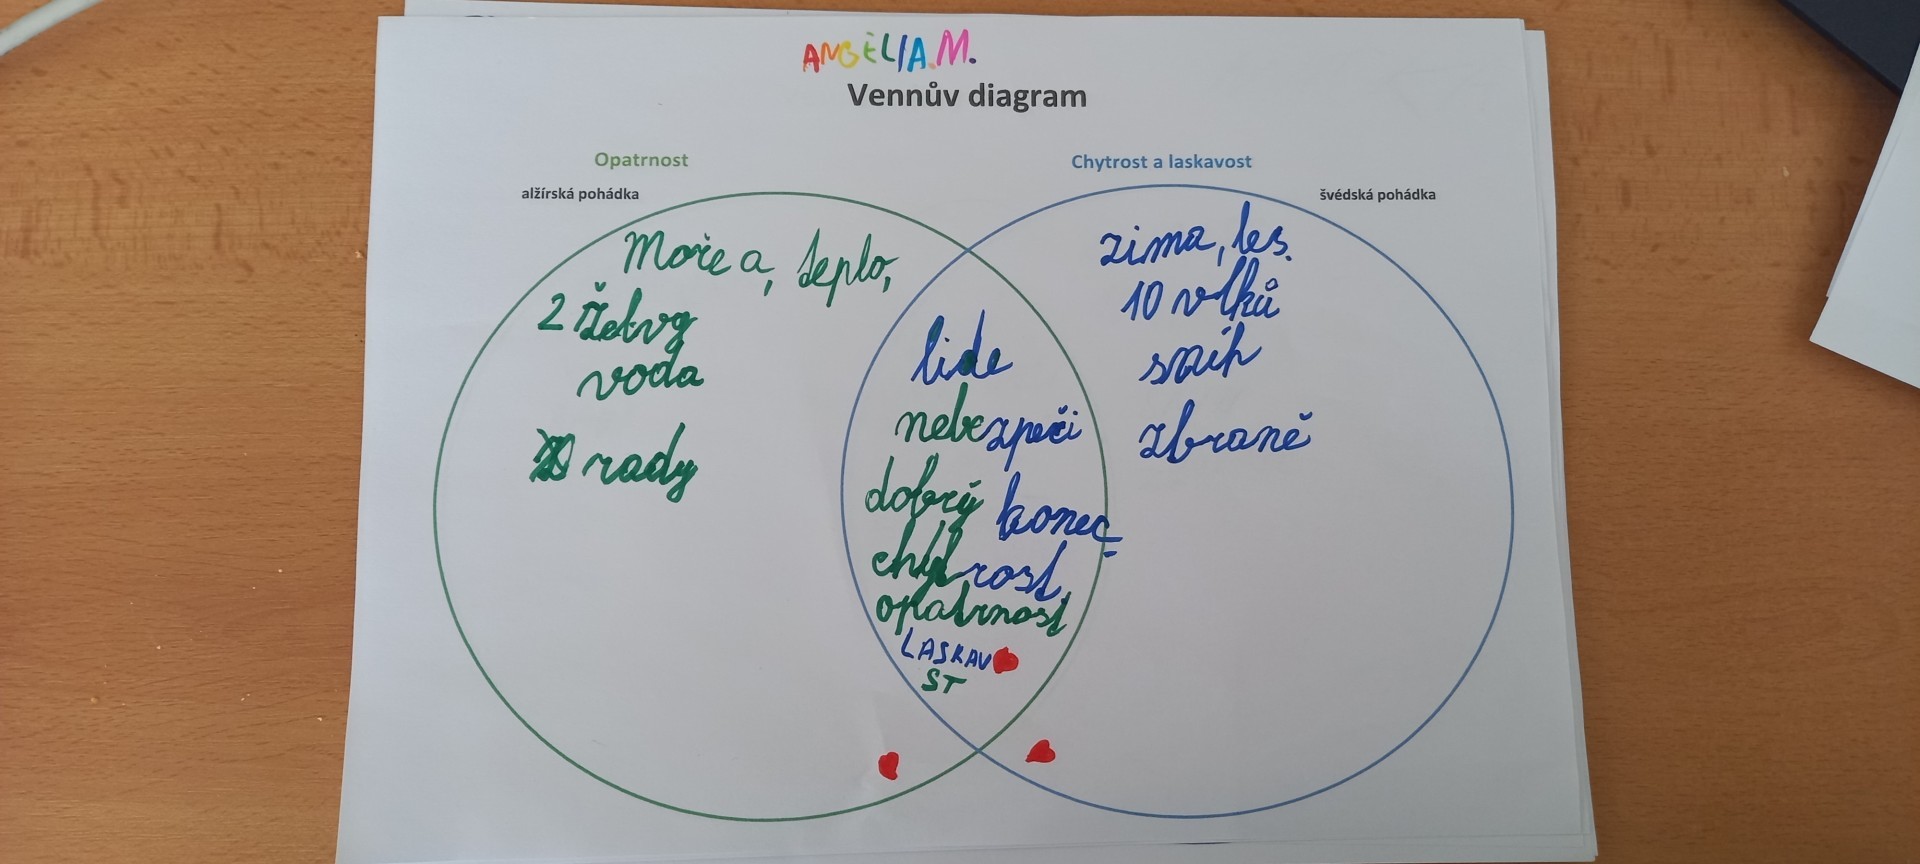 ANGËLIA.M.
Vennův diagram
Opatrnost
alžírská pohádka
Chytrost a laskavost
švédská pohádka
Moře a, teplo,
2 Želvy
voda
rady
lide
nebezpeči
dobrý konec
chytrost
opatrnost
LASKAV❤
ST
zima, les.
10 vlků
sníh
zbraně